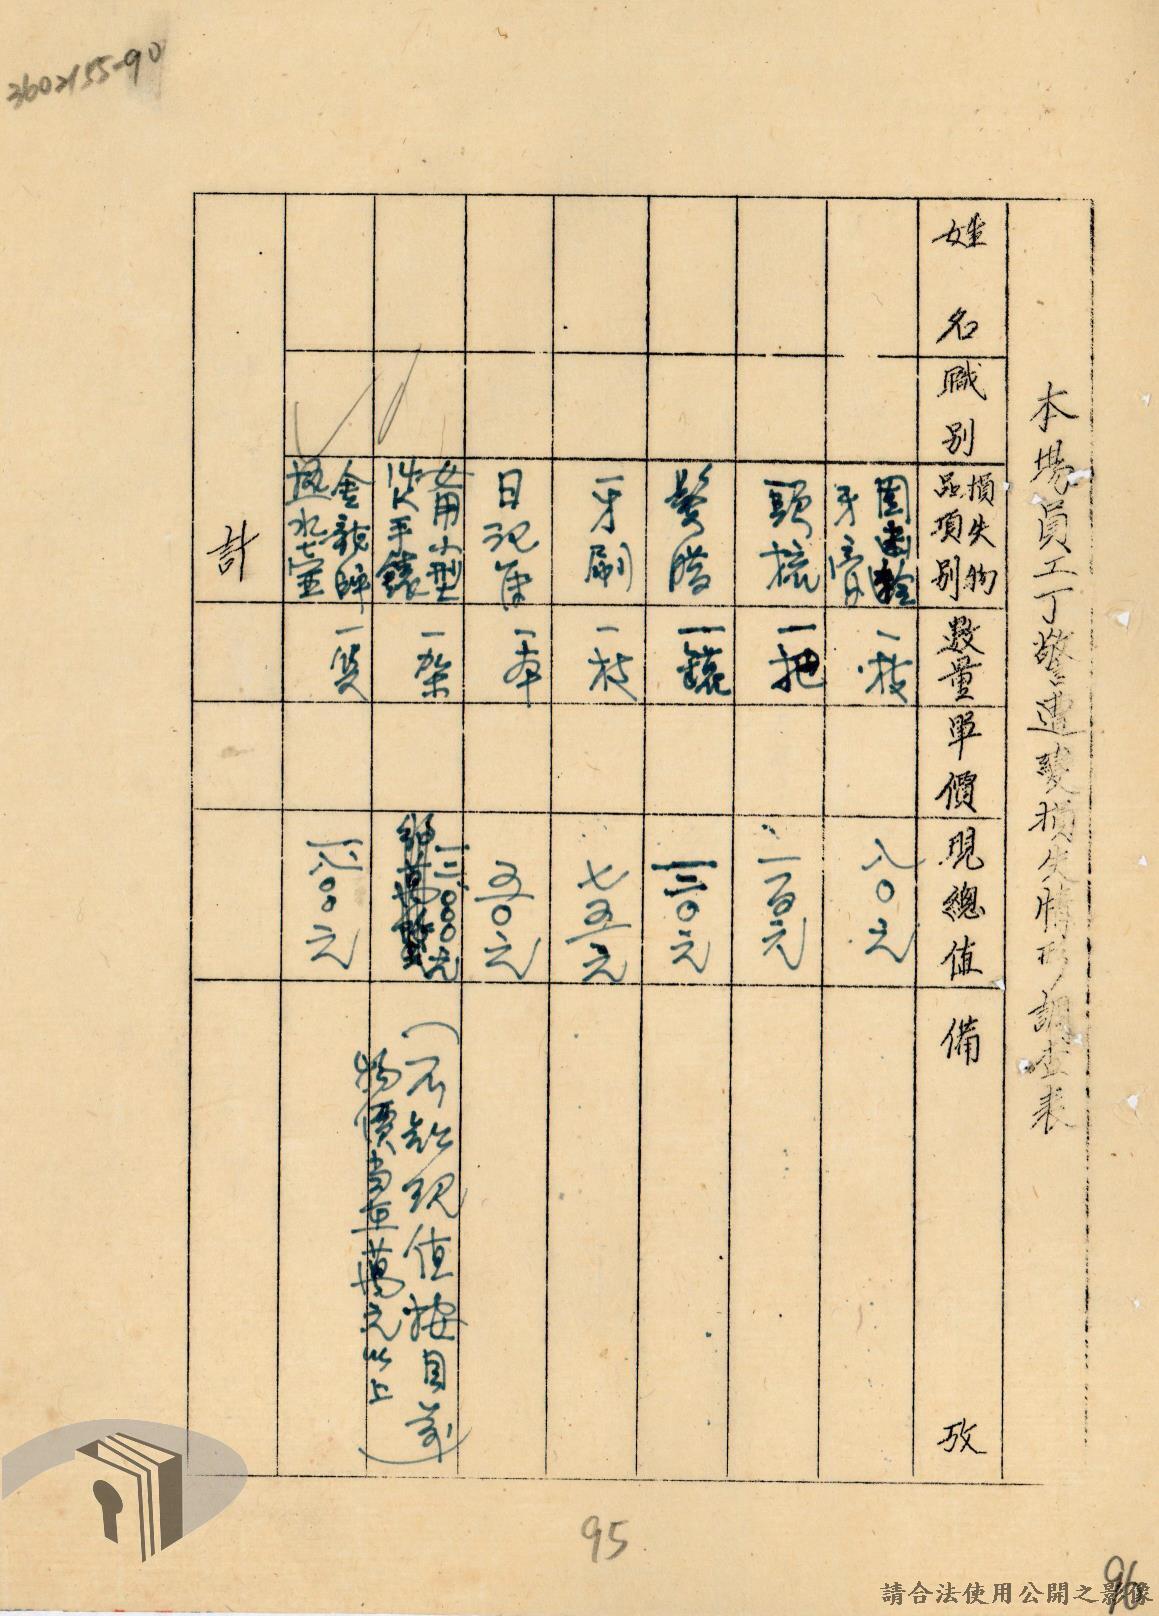 3602155-90
本場員工丁警遭變損失情形調查表
姓名
職別
損失物品項別
數量
單價
現總值
備攷
固齒
牙膏
一枝
八〇元
頭梳
一把
一百元
髮
一〇元
牙刷
一枝
七五元
日記
一本
五〇元
女用小型
手錶
一架
(
現值按目前
物價當在萬元以上)
金龍牌
熱水壺
一隻
一八〇〇元
計
95
96
請合法使用公開之影像